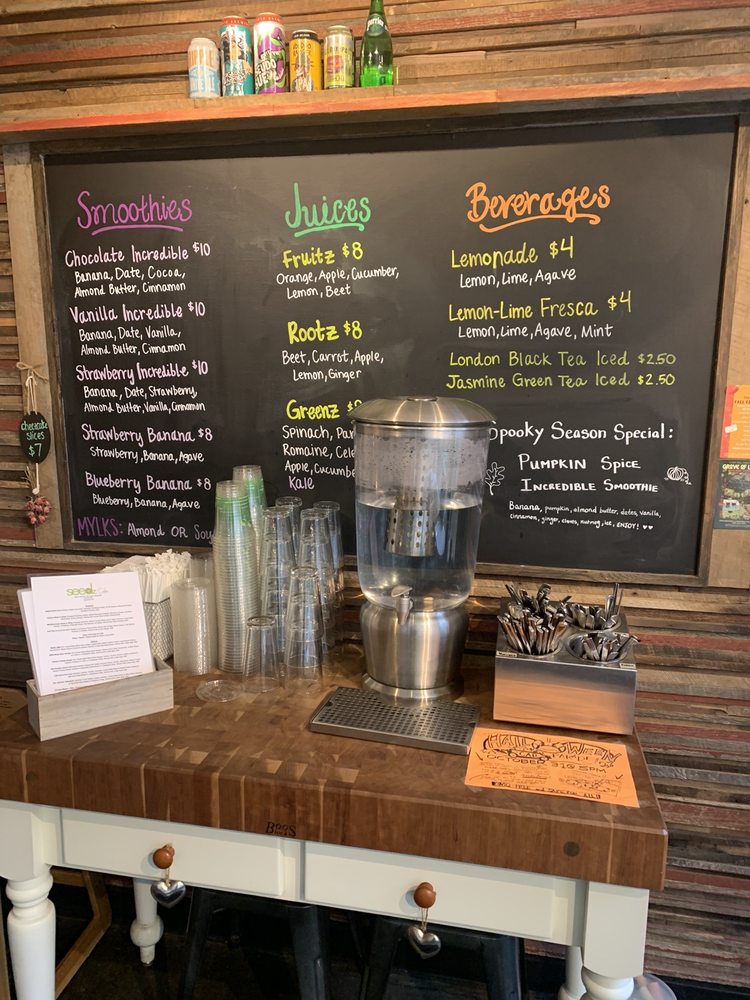 Smoothies
Chocolate Incredible $10
Banana, Date, Cocoa,
Almond Butter, Cinnamon
Vanilla Incredible $10
Banana, Date, Vanilla,
Almond Butter, Cinnamon
Strawberry Incredible $10
Banana, Date, Strawberry,
Almond Butter, Vanilla, Cinnamon
Strawberry Banana $8
Strawberry, Banana, Agave
Blueberry Banana $8
Blueberry, Banana, Agave
MYLKS: Almond OR Soy
Juices
Fruitz $8
Orange, Apple, Cucumber,
Lemon, Beet
Rootz $8
Beet, Carrot, Apple,
Lemon, Ginger
Greenz $8
Spinach, Par
Romaine, Cele
Apple, Cucumbe
Kale
Beverages
Lemonade $4
Lemon, Lime, Agave
Lemon-Lime Fresca $4
Lemon, Lime, Agave, Mint
London Black Tea Iced $2.50
Jasmine Green Tea Iced $2.50
Spooky Season Special:
Pumpkin Spice
Incredible Smoothie
Banana, pumpkin, almond butter, dates, vanilla,
cinnamon, ginger, cloves, nutmeg, ice, ENJOY!
cheesecake
slices
$7
seed
HALLOWEEN
OCTOBER 31 @ 5PM
FREE and SAFE FOR ALL!
BOOS